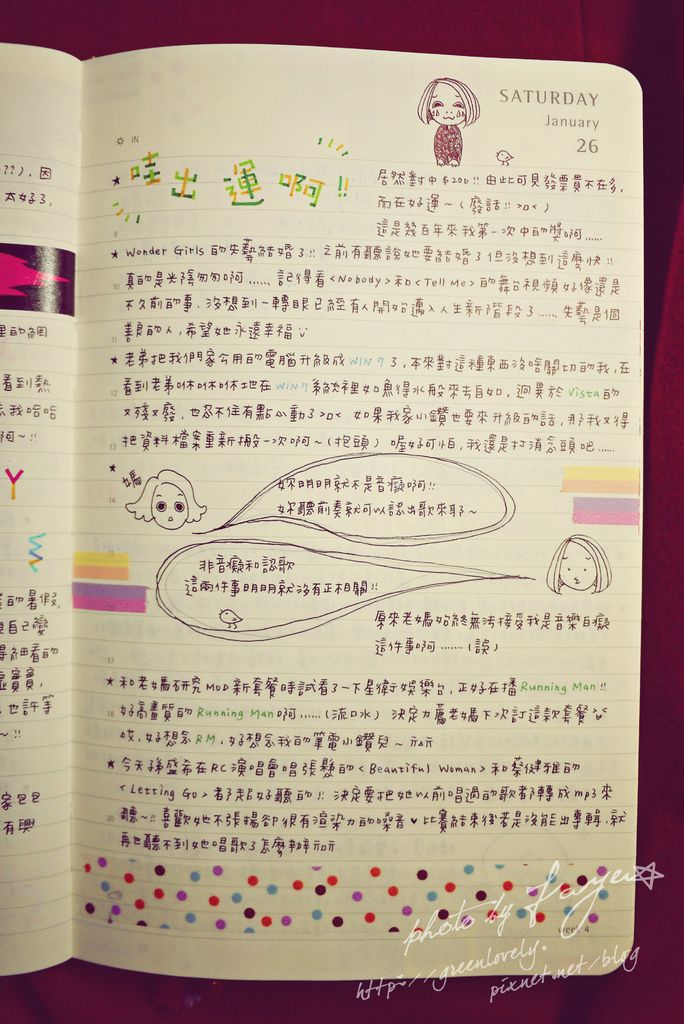 SATURDAY
January
26
IN
★ 哇出運啊!!
居然對中$200!! 由此可見發票貴不在多,
而在好運~(廢話!! >o<)
這是幾百年來我第一次中的獎啊……
9
★ Wonder Girls 的先藝結婚了!! 之前有聽說她要結婚了但沒想到這麼快!!
10
真的是光陰匆匆啊…… 記得看<Nobody>和<Tell Me>的舞台視頻好像還是
不久前的事,沒想到一轉眼已經有人開始邁入人生新階段了……先藝是個
11
善良的人,希望她永遠幸福
★ 老弟把我們家公用的電腦升級成 WIN 7 了,本來對這種東西沒啥關切的我,在
12
看到老弟咻咻咻地在 WIN7 系統裡如魚得水般來去自如,迥異於 Vista 的
又殘又廢,也忍不住有點心動了>o< 如果我家小鑽也要來升級的話,那我又得
13
把資料檔案重新搬一次啊~(抱頭) 喔好可怕,我還是打消念頭吧……
★
媽
14
妳明明就不是音癡啊!!
妳聽前奏就可以認出歌來耶~
非音癡和認歌
這兩件事明明就沒有正相關!!
原來老媽始終無法接受我是音樂白癡
這件事啊……(誤)
17
★ 和老媽研究 MOD 新套餐時試看了一下星衛娛樂台,正好在播 Running Man!!
18
好高畫質的 Running Man 啊……(流口水) 決定力薦老媽下次訂這款套餐
哎,好想念 RM,好想念我的筆電小鑽兒~
★ 今天孫盛希在RC演唱會唱張懸的<Beautiful Woman>和蔡健雅的
<Letting Go>都超好聽的!! 決定要把她以前唱過的歌都轉成mp3來
20
聽~!! 喜歡她不張揚卻很有渲染力的嗓音♥ 比賽結束後若是沒能出專輯,就
再也聽不到她唱歌了怎麼辦
week 4
??), 因
太好了,
里的網
看到熱
忘我哈哈
啊~!!
Y
W
的暑假,
自己變
得細看的
寶寶,
也許等
~!!
家包包
有興
photo by Fayew☆
http://greenlovely.
pixnet.net/blog